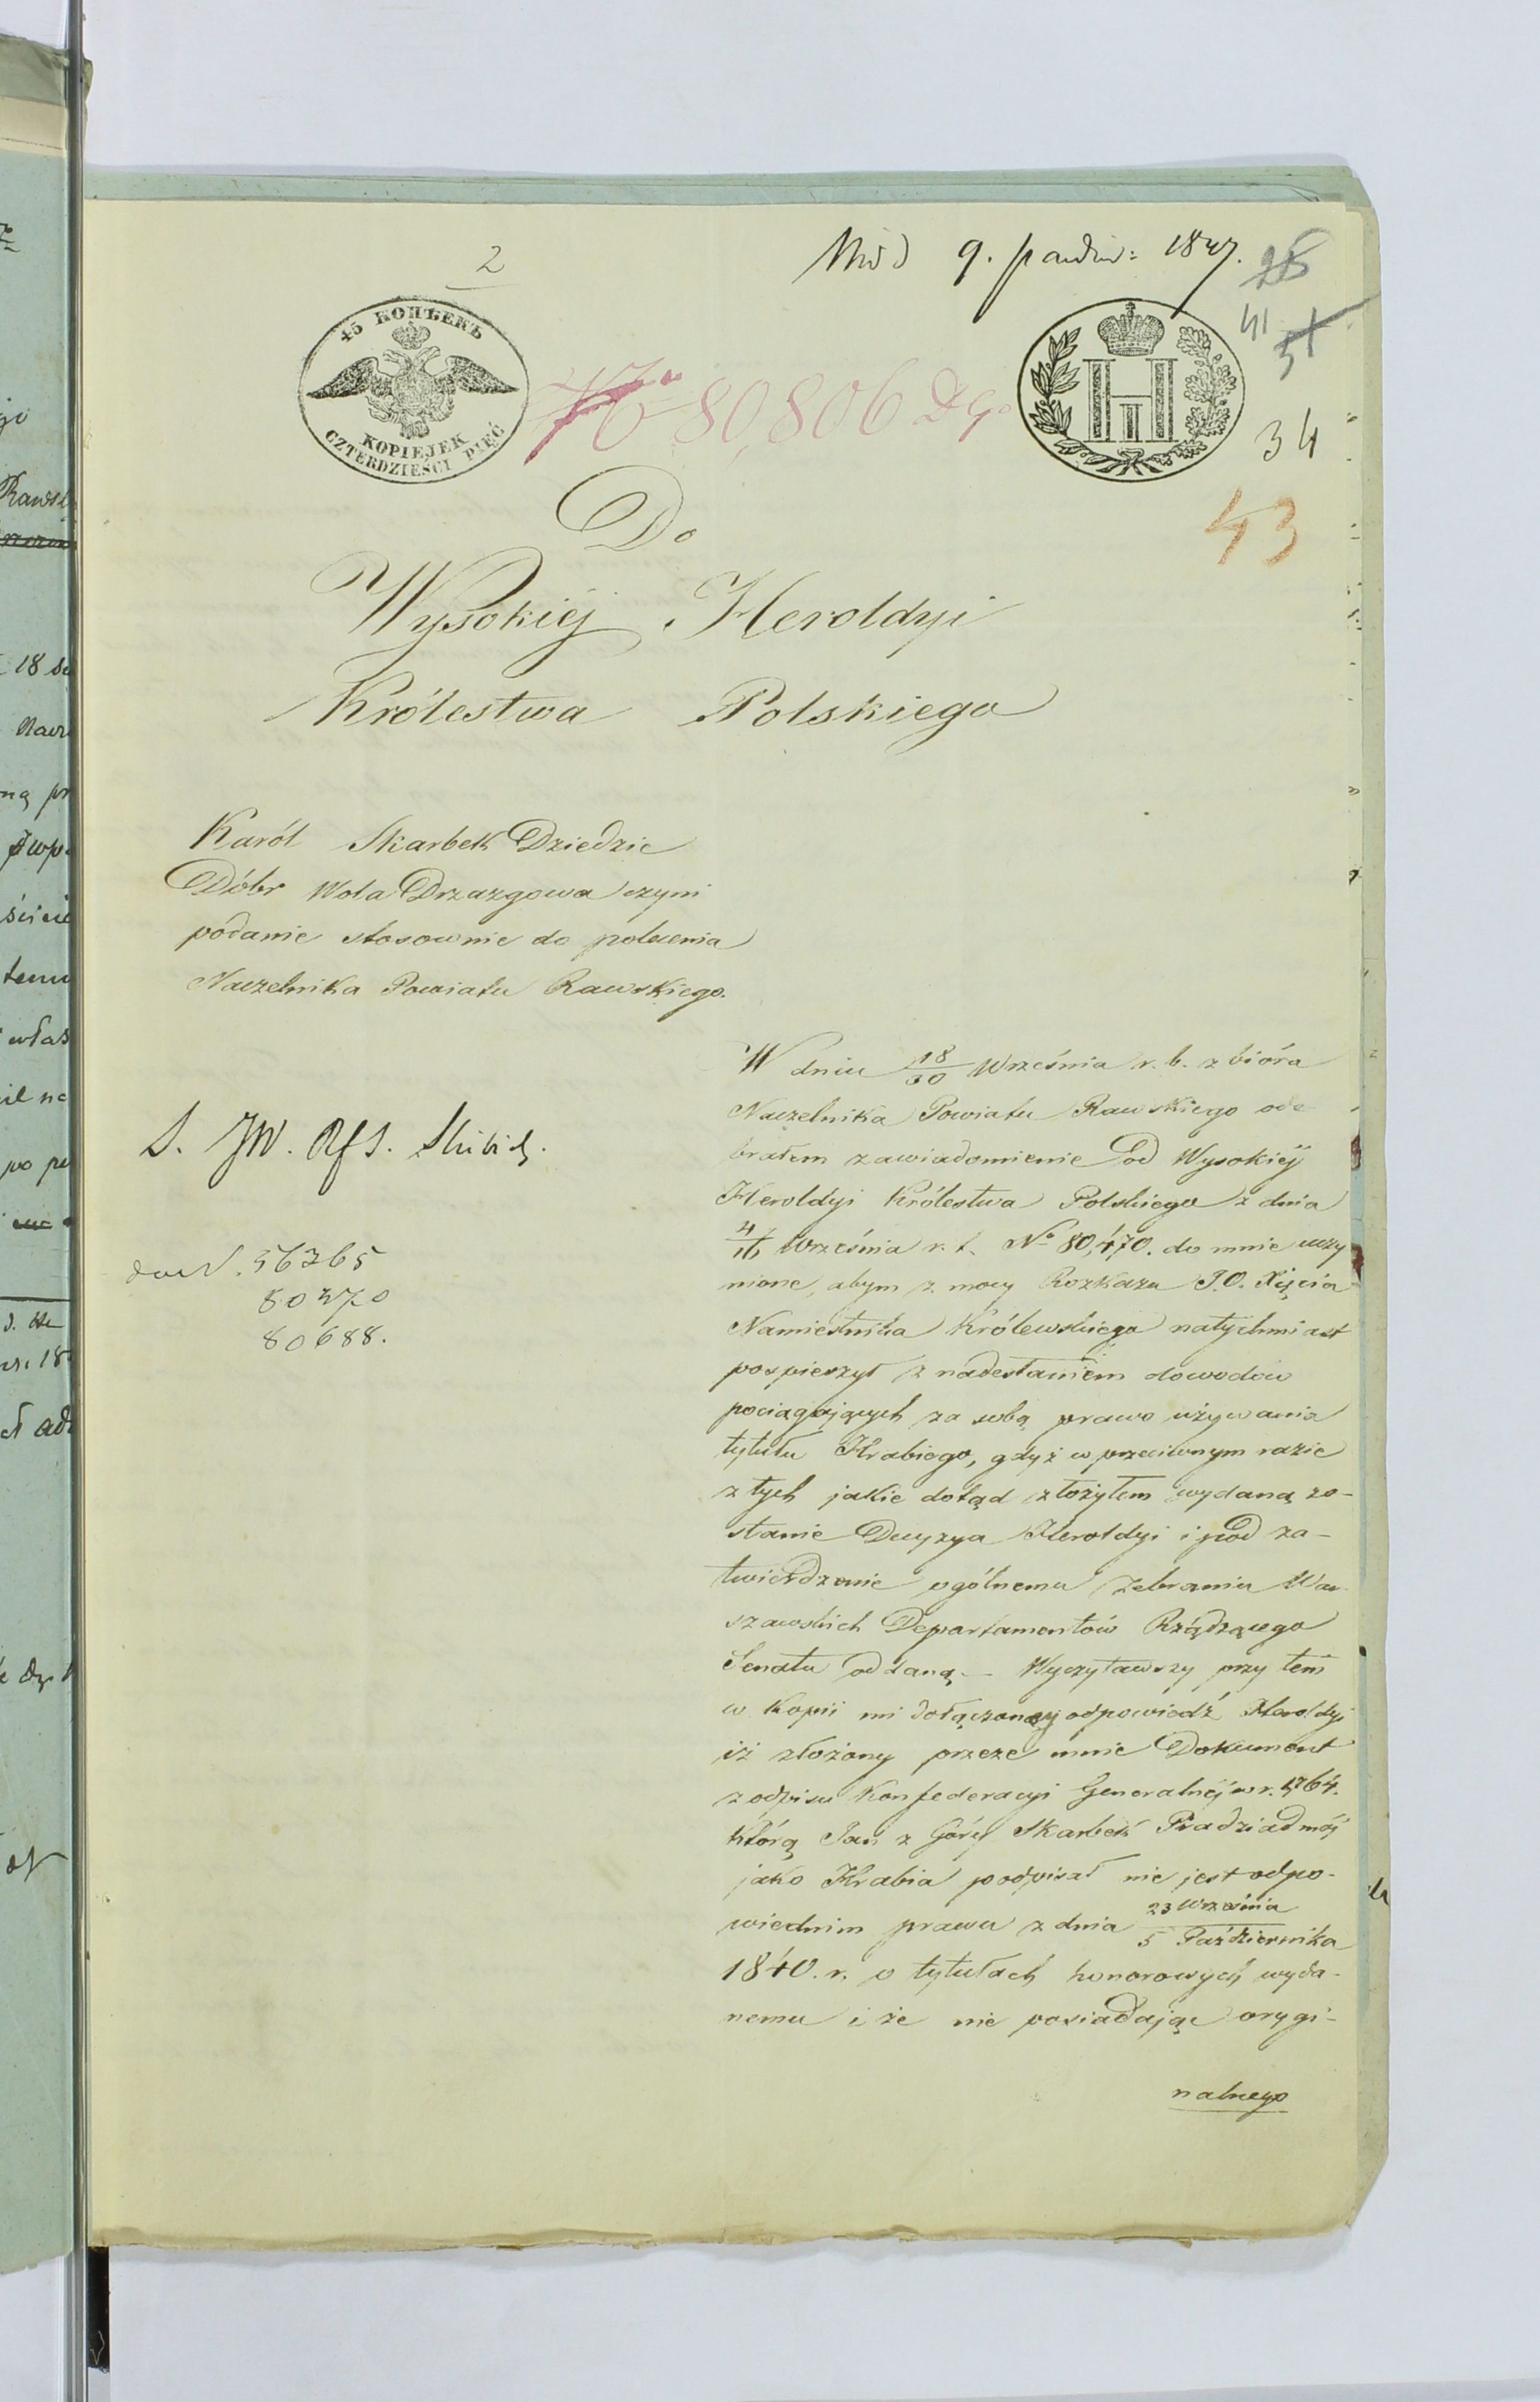 2
9. paździe: 1847.
41
34
43
45 КОПѢЕКЪ
KOPIEJEK
CZTERDZIEŚCI PIĘĆ
No 80,806
Do
Wysokiéj Heroldyi
Królestwa Polskiego
Karól Skarbek Dziedzic
Dóbr Wola Drzazgowa czyni
podanie stosownie do polecenia
Naczelnika Powiatu Rawskiego.
S. JW.
56265
80370
80688.
W dniu 18/30 Września r. b. z bióra
Naczelnika Powiatu Rawskiego ode
brałem zawiadomienie od Wysokiéj
Heroldyi Królestwa Polskiego z dnia
4/16 Września r. t. No 80,470. do mnie uczy
nione, abym z mocy Rozkazu J.O. Xięcia
Namiestnika Królewskiego natychmiast
pospieszył z nadesłaniem dowodów
pociągających za sobą prawo używania
tytułu Hrabiego, gdyż w przeciwnym razie
z tych jakie dotąd złożyłem wydaną zo-
stanie Decyzya Heroldyi i pod za-
twierdzenie ogólnemu Zebraniu War
szawskich Departamentów Rządzącego
Senatu oddaną. — Wyczytawszy przy tem
w kopii mi dołączonéj odpowiedź Heroldyi
iż złożony przeze mnie Dokument
z odpisu Konfederacyi Generalnéj w r. 1764.
którą Jan z Góry Skarbek Pradziad mój
jako Hrabia podpisał nie jest odpo-
wiednim prawu z dnia 23 Września / 5 Października
1840. r. o tytułach honorowych wyda-
nemu i że nie posiadając orygi-
nalnego